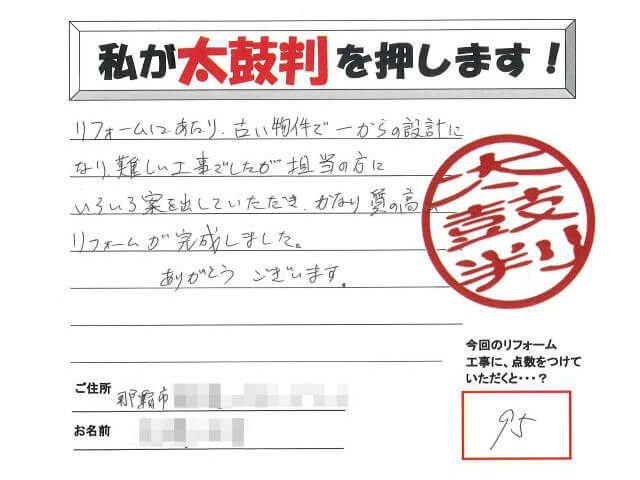 私が太鼓判を押します！
リフォームにあたり、古い物件で一からの設計に
なり、難しい工事でしたが担当の方に
いろいろ案を出していただき、かなり質の高い
リフォームが完成しました。
ありがとうございます。
太鼓判
今回のリフォーム
工事に、点数をつけて
いただくと・・・？
95
ご住所 那覇市
お名前